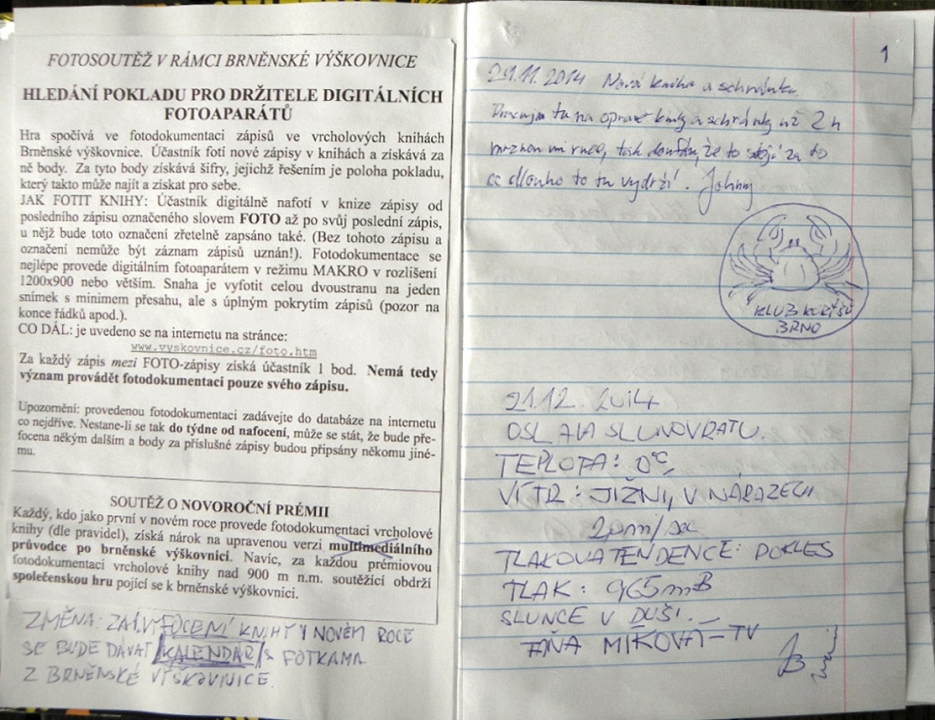 FOTOSOUTĚŽ V RÁMCI BRNĚNSKÉ VÝŠKOVNICE
HLEDÁNÍ POKLADU PRO DRŽITELE DIGITÁLNÍCH
FOTOAPARÁTŮ
Hra spočívá ve fotodokumentaci zápisů ve vrcholových knihách
Brněnské výškovnice. Účastník fotí nové zápisy v knihách a získává za
ně body. Za tyto body získává šifry, jejichž řešením je poloha pokladu,
který takto může najít a získat pro sebe.
JAK FOTIT KNIHY: Účastník digitálně nafotí v knize zápisy od
posledního zápisu označeného slovem FOTO až po svůj poslední zápis,
u nějž bude toto označení zřetelně zapsáno také. (Bez tohoto zápisu a
označení nemůže být záznam zápisů uznán!). Fotodokumentace se
nejlépe provede digitálním fotoaparátem v režimu MAKRO v rozlišení
1200x900 nebo větším. Snaha je vyfotit celou dvoustranu na jeden
snímek s minimem přesahu, ale s úplným pokrytím zápisů (pozor na
konce řádků apod.).
CO DÁL: je uvedeno se na internetu na stránce:
www.vyskovnice.cz/foto.htm
Za každý zápis mezi FOTO-zápisy získá účastník 1 bod. Nemá tedy
význam provádět fotodokumentaci pouze svého zápisu.
Upozornění: provedenou fotodokumentaci zadávejte do databáze na internetu
co nejdříve. Nestane-li se tak do týdne od nafocení, může se stát, že bude pře-
focena někým dalším a body za příslušné zápisy budou připsány někomu jiné-
mu.
SOUTĚŽ O NOVOROČNÍ PRÉMII
Každý, kdo jako první v novém roce provede fotodokumentaci vrcholové
knihy (dle pravidel), získá nárok na upravenou verzi multimediálního
průvodce po brněnské výškovnici. Navíc, za každou prémiovou
fotodokumentaci vrcholové knihy nad 900 m n.m. soutěžící obdrží
společenskou hru pojící se k brněnské výškovnici.
ZMĚNA: ZA 1. VYFOCENÍ KNIHY V NOVÉM ROCE
SE BUDE DÁVAT KALENDÁŘ S FOTKAMA
Z BRNĚNSKÉ VÝŠKOVNICE.
1
29.11.2014 Nová kniha a schránka
Pracuji tu na opravě knihy a schránky už 2 h
mrznou mi ruce, tak doufám, že to stojí za to
a dlouho to tu vydrží. Johny
KLUB KURTŠŮ
BRNO
21.12. 2014
OSLAVA SLUNOVRATU.
TEPLOTA: 0°C
VÍTR: JIŽNÍ, V NÁRAZECH
20m/sec
TLAKOVA TENDENCE: POKLES
TLAK: 965mB
SLUNCE V DUŠI.
TÁŇA MÍKOVÁ - TV